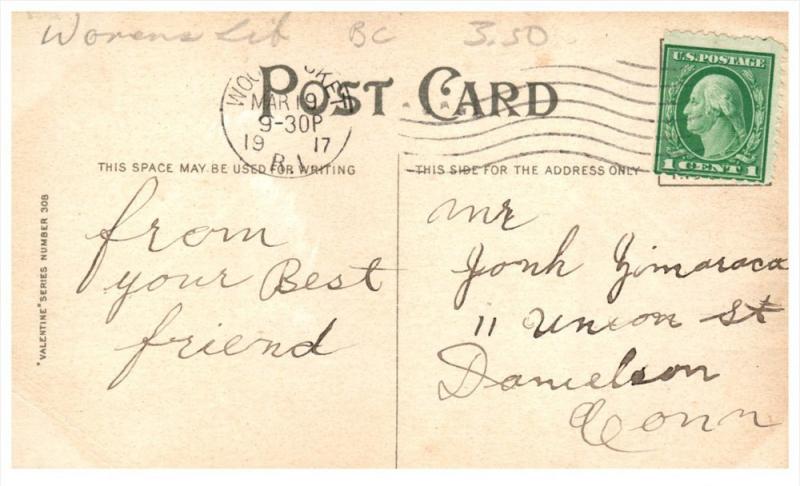 Worens Lib BC 3.50
POST CARD
MAR 19
9-30P
19 17
R.I.
U.S. POSTAGE
1 CENT 1
THIS SPACE MAY BE USED FOR WRITING
THIS SIDE FOR THE ADDRESS ONLY
"VALENTINE" SERIES NUMBER 308
from
your Best
friend
Mr
Jonh Zimaraca
11 Union St
Danielson
Conn